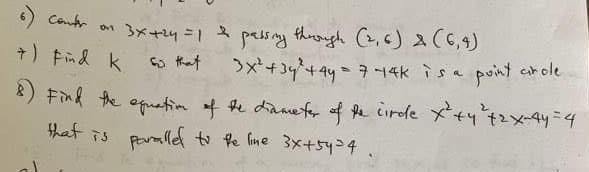 6) Center on 3x+2y=1 & passing through (2,6) & (6,4)
7) Find k so that 3x²+3y²+4y = 7-14k is a point circle
8) Find the equation of the diameter of the circle x²+y²+2x-4y=4
that is parallel to the line 3x+5y=4.